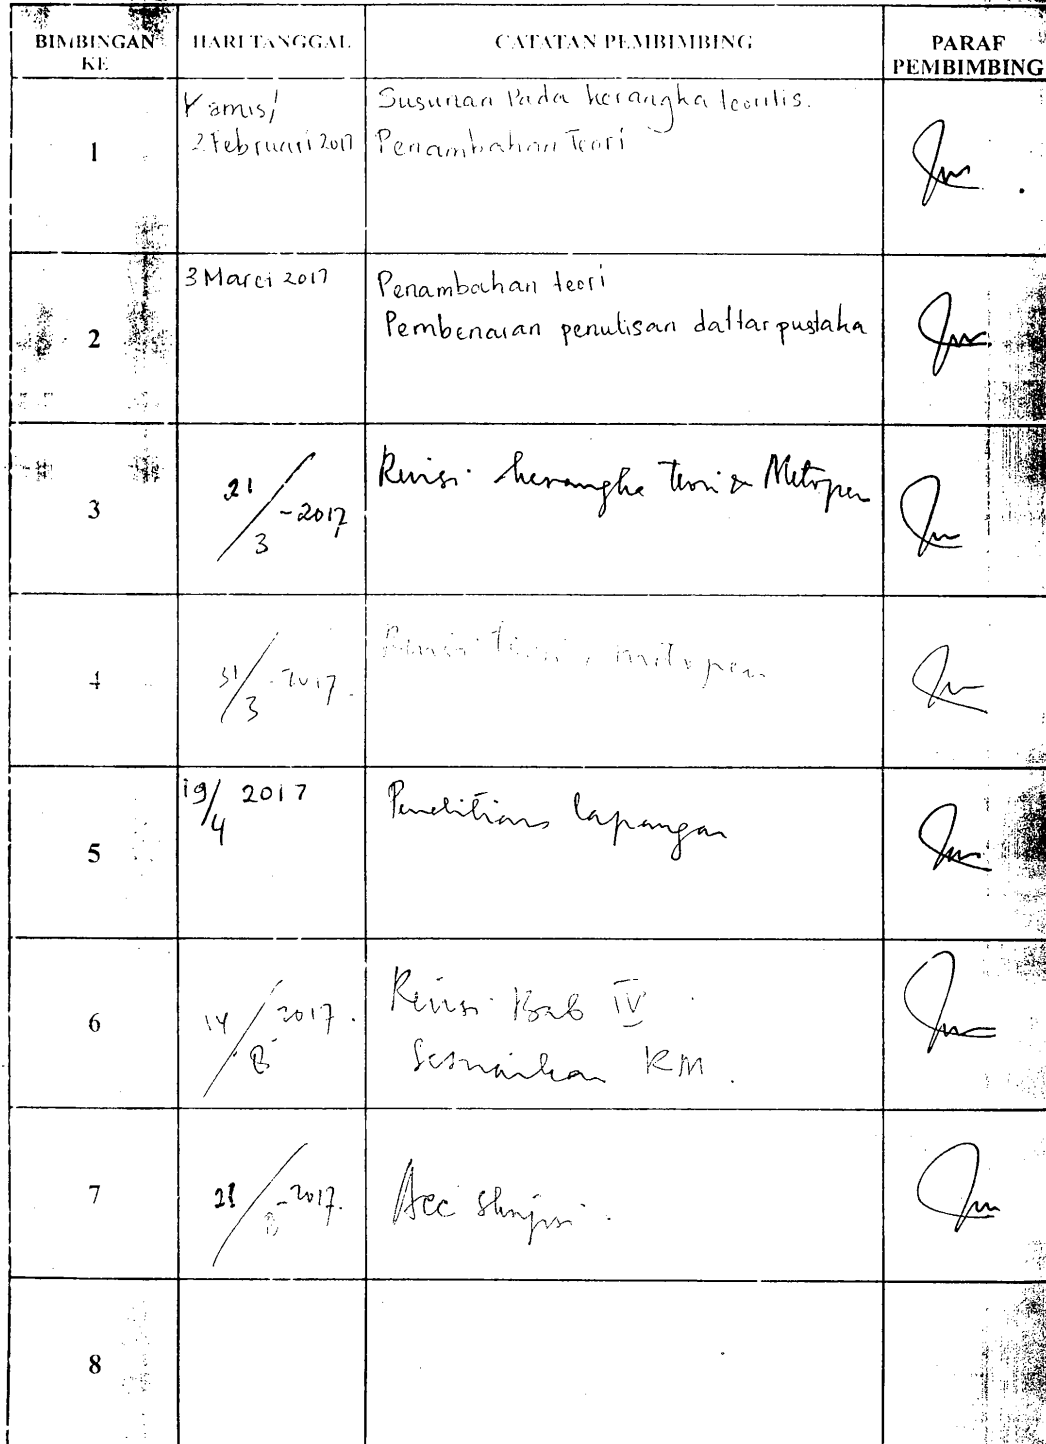 BIMBINGAN KE
HARI TANGGAL
CATATAN PEMBIMBING
PARAF PEMBIMBING
1
Kamis/
2 Februari 2017
Susunan Pada kerangka teoritis.
Penambahan Teori
2
3 Maret 2017
Penambahan teori
Pembenaran penulisan daftar pustaka
3
21/3 - 2017
Revisi kerangka teori & Metopen
4
31/3 - 2017.
Revisi teori, metopen
5
19/4 2017
Penelitian lapangan
6
14/8 2017.
Revisi Bab IV
Sesuaikan RM.
7
21/8 - 2017.
Acc skripsi.
8